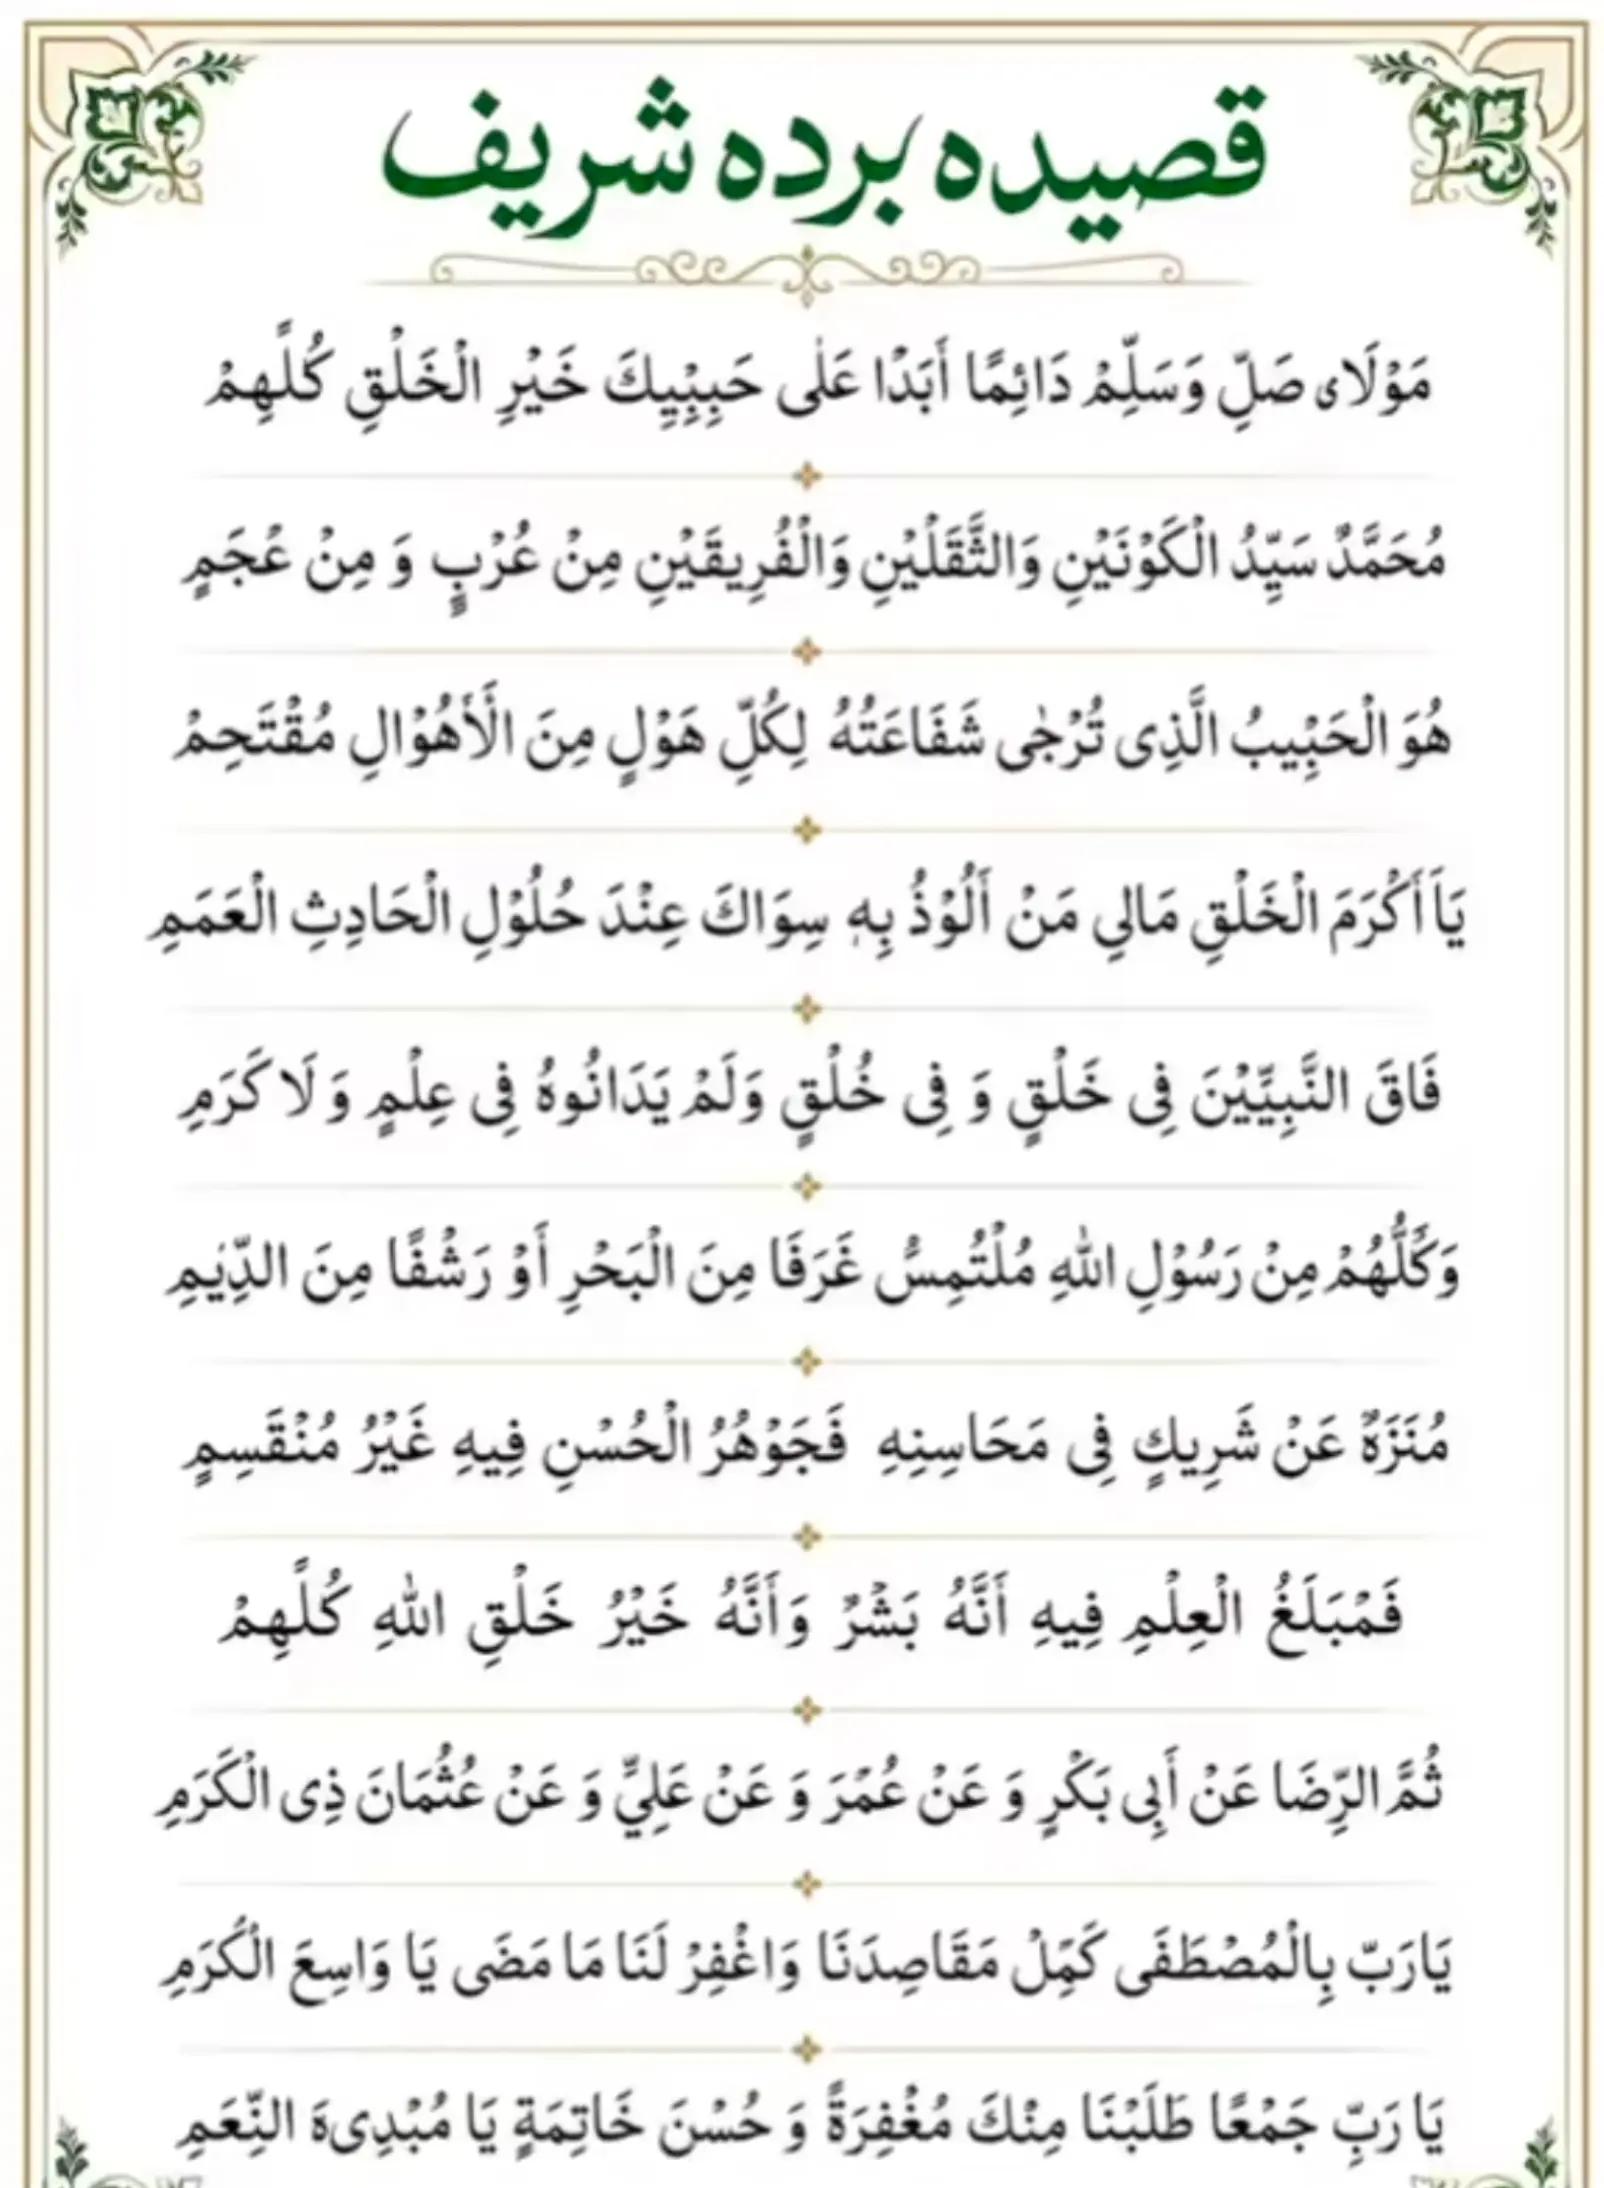 قصیدہ بردہ شریف
مَوْلَاى صَلِّ وَسَلِّمْ دَائِمًا أَبَدًا عَلٰى حَبِبِيْبِكَ خَيْرِ الْخَلْقِ كُلِّهِمْ
مُحَمَّدٌ سَيِّدُ الْكَوْنَيْنِ وَالثَّقَلَيْنِ وَالْفُرِيقَيْنِ مِنْ عُرْبٍ وَ مِنْ عُجَمٍ
هُوَ الْحَبِيبُ الَّذِى تُرْجٰى شَفَاعَتُهُ لِكُلِّ هَوْلٍ مِنَ الْأَهْوَالِ مُقْتَحِمْ
يَاَ أَكْرَمَ الْخَلْقِ مَالِي مَنْ أَلُوْذُ بِهٖ سِوَاكَ عِنْدَ حُلُوْلِ الْحَادِثِ الْعَمَمِ
فَاقَ النَّبِيِّيْنَ فِى خَلْقٍ وَ فِى خُلْقٍ وَلَمْ يَدَانُوهُ فِى عِلْمٍ وَ لَا كَرَمِ
وَكُلُّهُمْ مِنْ رَسُوْلِ اللهِ مُلْتُمِسٌ غَرَفَا مِنَ الْبَحْرِ أَوْ رَشْفًا مِنَ الدِّيَمِ
مُنَزَهٌ عَنْ شَرِيكٍ فِى مَحَاسِنِهِ فَجَوْهُرُ الْحُسْنِ فِيهِ غَيْرُ مُنْقَسِمٍ
فَمْبَلَغُ الْعِلْمِ فِيهِ أَنَّهُ بَشْرٌ وَأَنَّهُ خَيْرُ خَلْقِ اللهِ كُلِّهِمْ
ثُمَّ الرِّضَا عَنْ أَبِى بَكْرٍ وَ عَنْ عُمْرَ وَ عَنْ عَلِيٍّ وَ عَنْ عُثْمَانَ ذِى الْكَرَمِ
يَارَبِّ بِالْمُصْطَفَى كَمِّلْ مَقَاصِدَنَا وَاغْفِرْ لَنَا مَا مَضَى يَا وَاسِعَ الْكُرَمِ
يَا رَبِّ جَمْعًا طَلَبْنَا مِنْكَ مُغْفِرَةً وَ حُسْنَ خَاتِمَةٍ يَا مُبْدِىَٔ النِّعَمِ